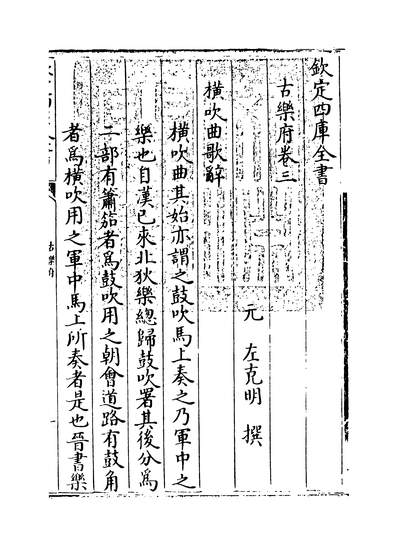 欽定四庫全書
古樂府卷三
元 左克明 撰
橫吹曲歌辭
橫吹曲其始亦謂之鼓吹馬上奏之乃軍中之
樂也自漢已來北狄樂總歸鼓吹署其後分為
二部有簫笳者為鼓吹用之朝會道路有鼓角
者為橫吹用之軍中馬上所奏者是也晉書樂
古樂府